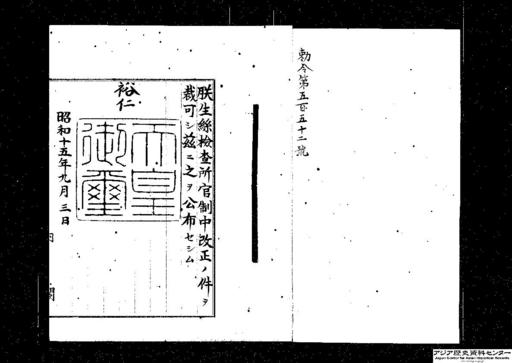 勅令第五百五十二號
朕生絲檢査所官制中改正ノ件ヲ
裁可シ茲ニ之ヲ公布セシム
裕仁
天皇
御璽
昭和十五年九月三日
内閣
アジア歴史資料センター
Japan Center for Asian Historical Records